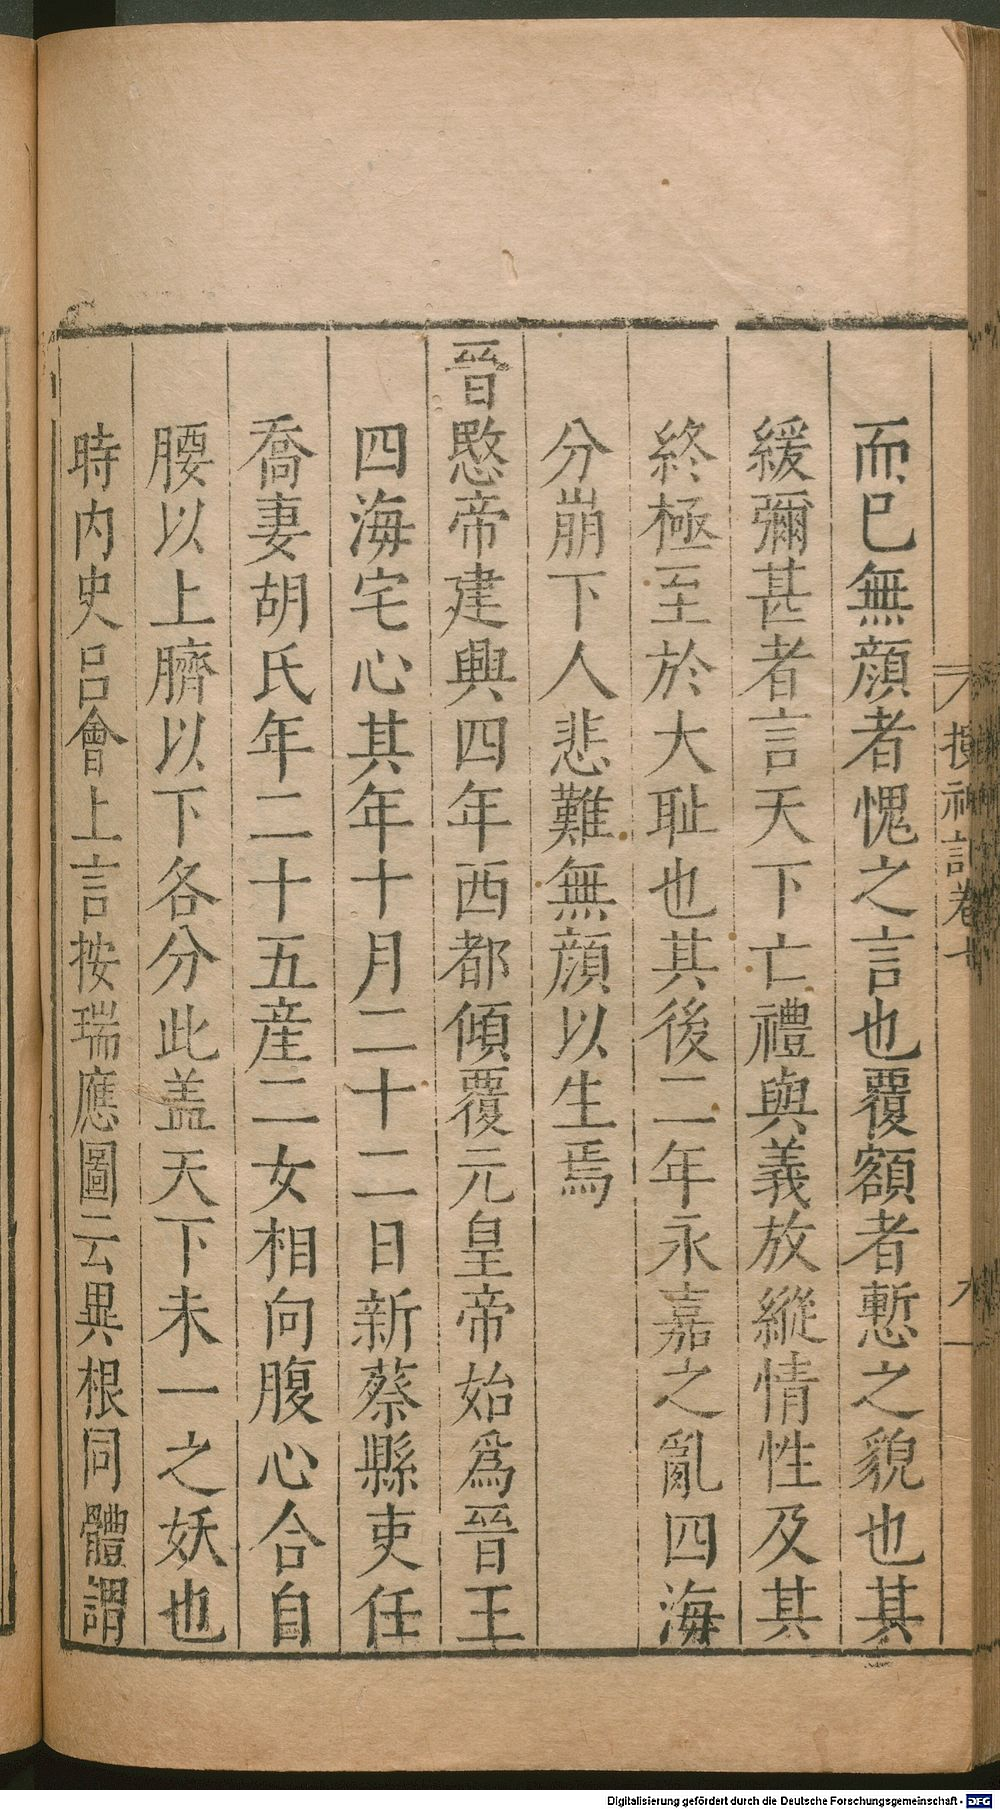 而已無顔者愧之言也覆額者慙之貌也其
緩彌甚者言天下亡禮與義放縱情性及其
終極至於大耻也其後二年永嘉之亂四海
分崩下人悲難無顔以生焉
晉愍帝建興四年西都傾覆元皇帝始爲晉王
四海宅心其年十月二十二日新蔡縣吏任
喬妻胡氏年二十五産二女相向腹心合自
腰以上臍以下各分此盖天下未一之妖也
時内史呂會上言按瑞應圖云異根同體謂
搜神記卷七
Digitalisierung gefördert durch die Deutsche Forschungsgemeinschaft - DFG